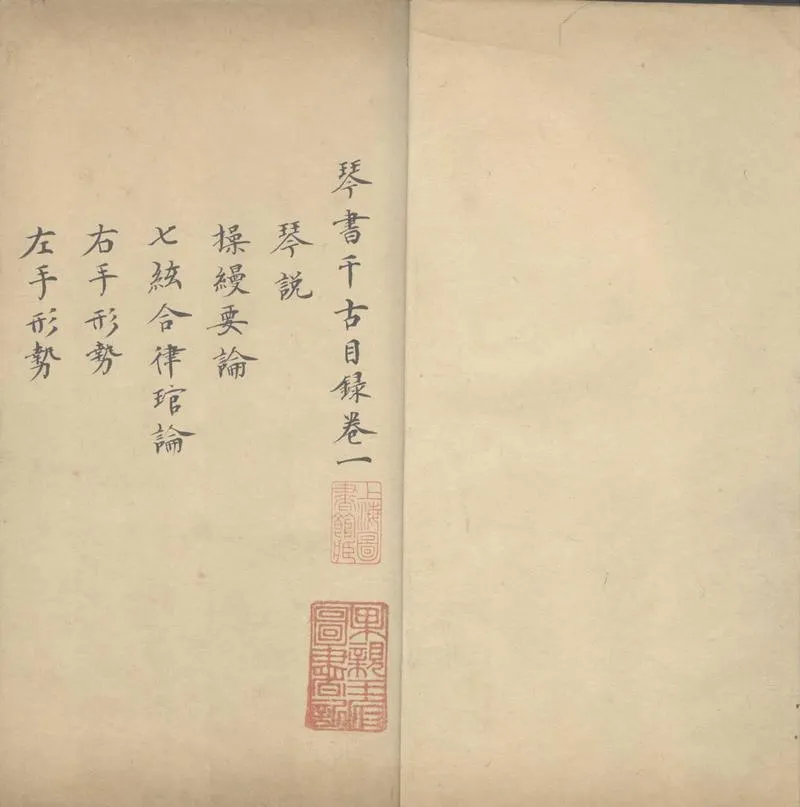 琴書千古目録卷一
琴説
操縵要論
七絃合律琯論
右手形勢
左手形勢
上海圖
書館藏
果親王府
圖書記